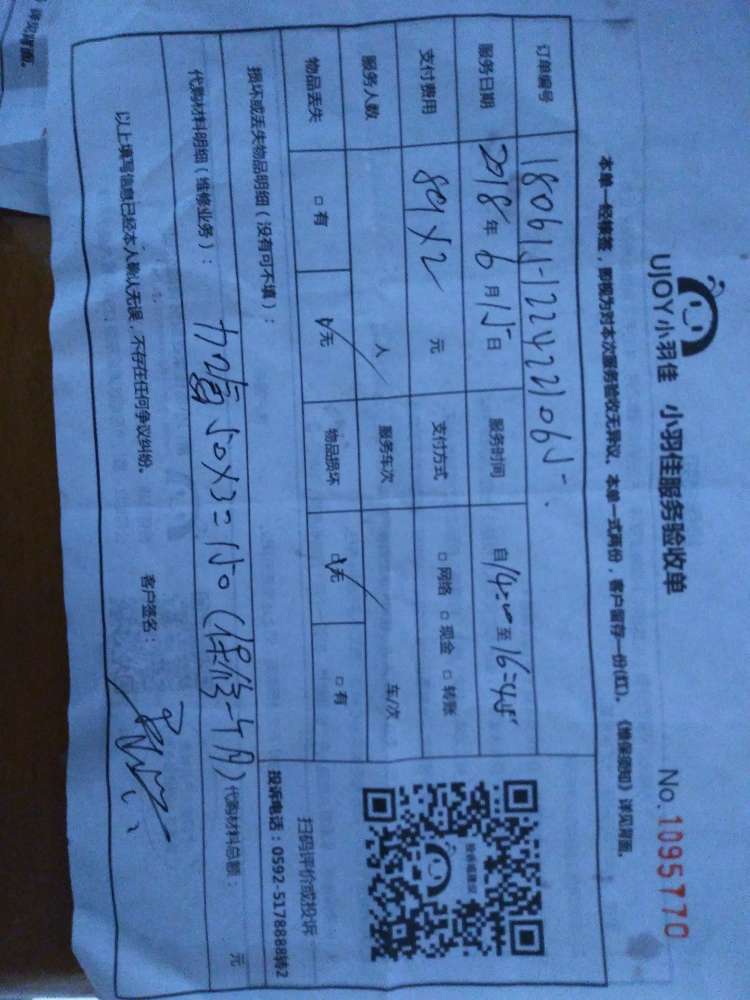 UJOY小羽佳 小羽佳服务验收单 No.1095770
本单一经核签，即视为对本次服务验收无异议。本单一式两份，客户留存一份(红)。《维保须知》详见背面。
订单编号 180615-1224221065
服务日期 2018年6月15日 服务时间 自14:00至16:45
支付费用 89×2 元 支付方式 □网络 □现金 □转账
服务人数 人 服务车次 车/次
物品丢失 □有 □无 物品损坏 □无 □有
损坏或丢失物品明细（没有可不填）：
代购材料明细（维修业务）： 50×3=150(保修一个月) 代购材料总额： 元
投诉或建议
扫码评价或投诉
投诉电话：0592-5178888转2
以上填写信息已经本人确认无误，不存在任何争议纠纷。 客户签名：
详见背面。